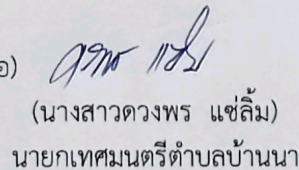 อ)
(นางสาวดวงพร แซ่ลิ้ม)
นายกเทศมนตรีตำบลบ้านนา